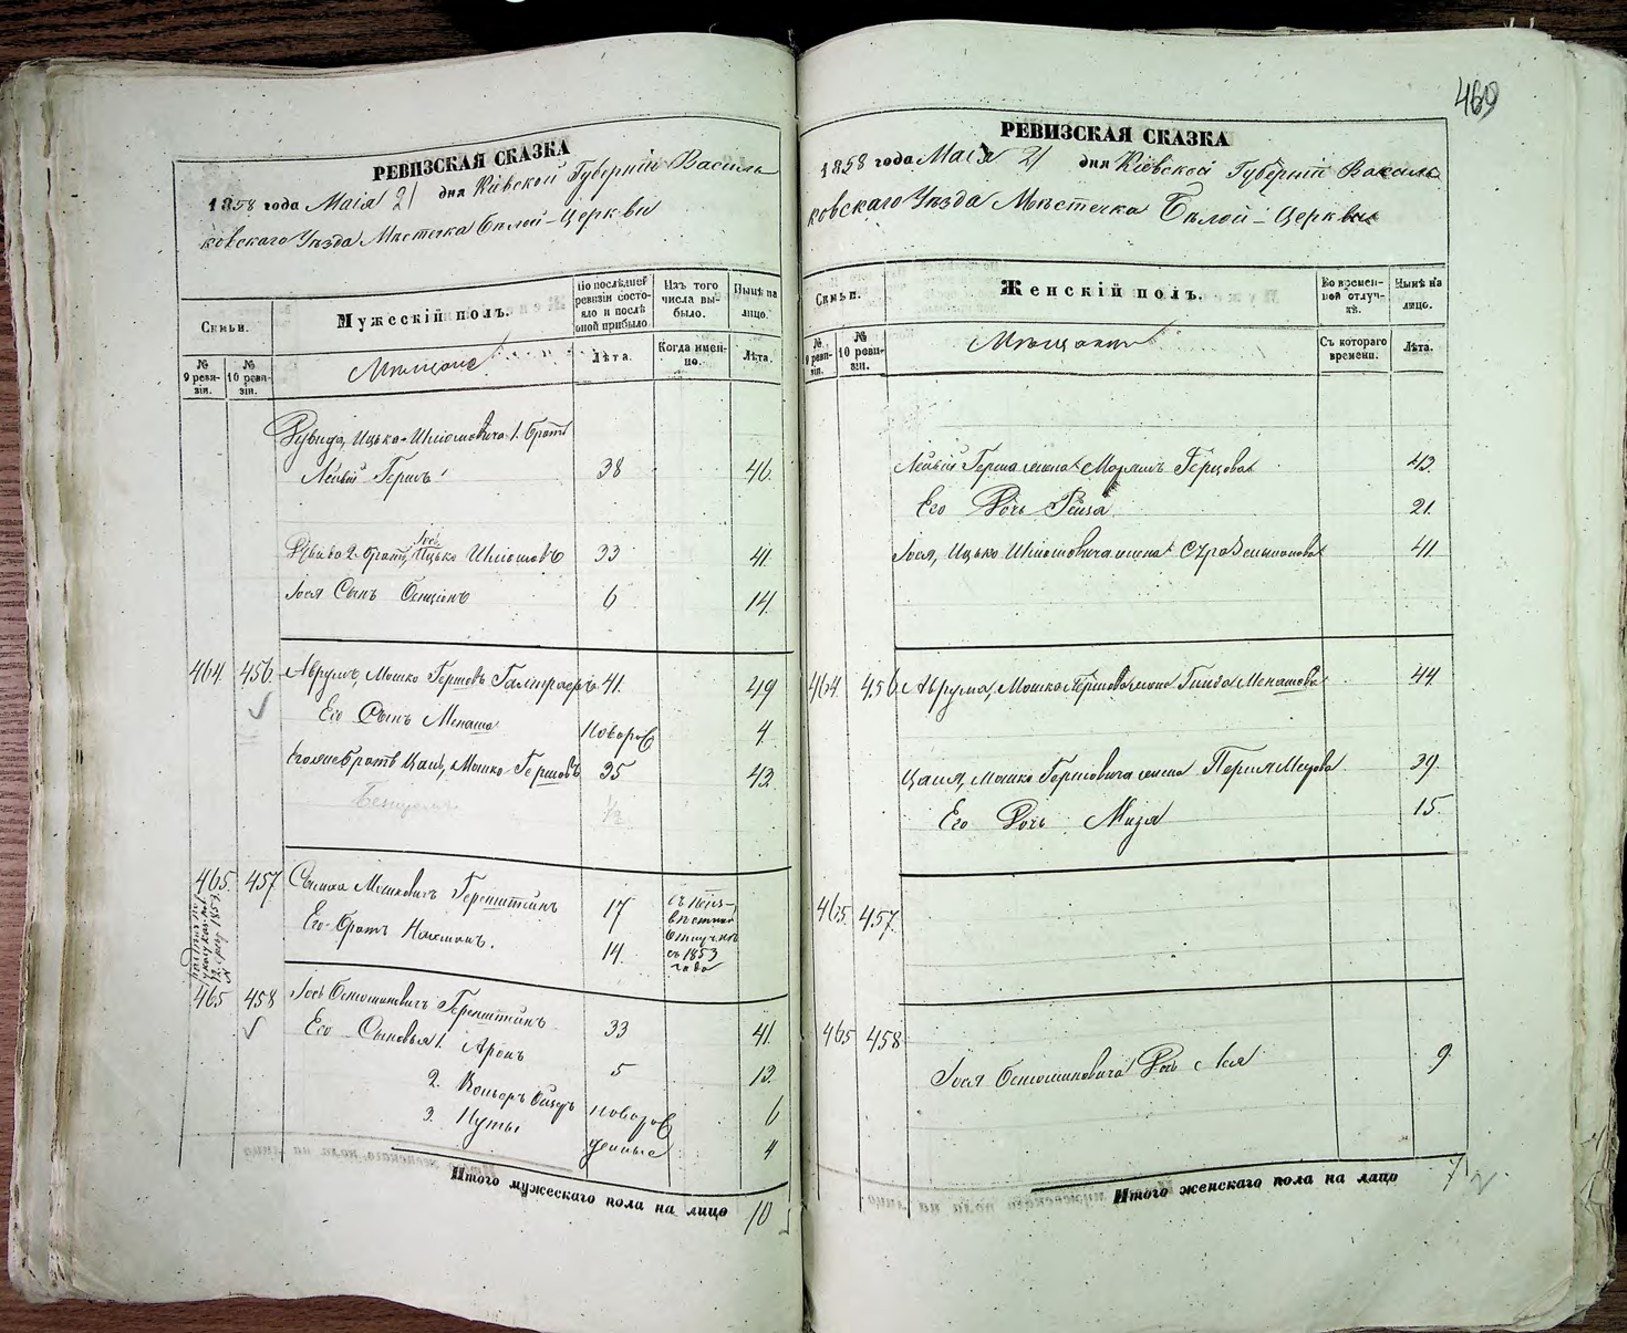 469
РЕВИЗСКАЯ СКАЗКА
1858 года Маія 21 дня Кіевской Губерніи Василь
ковскаго Уѣзда Мѣстечка Бѣлой-Церкви
Семьи.
Мужескій полъ.
По послѣдней ревизіи состояло и послѣ оной прибыло
Изъ того числа выбыло.
Нынѣ на лицо.
№ 9 ревизіи.
№ 10 ревизіи.
Мѣщане
Лѣта.
Когда именно.
Лѣта.
Ицько-Шліомовича 1. братъ
Лейбій Гершъ 38 46.
2. братъ, Ицько Шліомовъ 33 41.
Іося Сынъ 6 14.
464. 456. Аврумъ, Мошко Гершовъ 41. 49
Его Сынъ Менаша новорож 4.
Его же братъ Мошко Гершовъ 35 43.
1/2
465. 457 Мошковичъ Геренштейнъ 17
Его братъ Нахманъ. 14.
съ 1853 года
465 458 Іось Геренштейнъ 33 41.
Его Сыновья 1. Аронъ 5 13.
2. новорож 6
3. Нуты денные 4
Итого мужескаго пола на лицо 10
РЕВИЗСКАЯ СКАЗКА
1858 года Маія 21 дня Кіевской Губерніи Василь
ковскаго Уѣзда Мѣстечка Бѣлой-Церкви
Семьи.
Женскій полъ.
Во временной отлучкѣ.
Нынѣ на лицо.
№ 9 ревизіи.
№ 10 ревизіи.
Мѣщанки
Съ котораго времени.
Лѣта.
Лейбій Герша жена Маріимъ Герцова 43.
Его Дочь Рейза 21.
Іося, Ицько Шліомовича жена 41
464 456. Аврума, Мошко Гершова жена Менашова 44
Мошко Гершовича жена Перля 39.
Его Дочь Мизя 15.
465. 457.
465 458
Іося Дочь Лея 9.
Итого женскаго пола на лицо 7